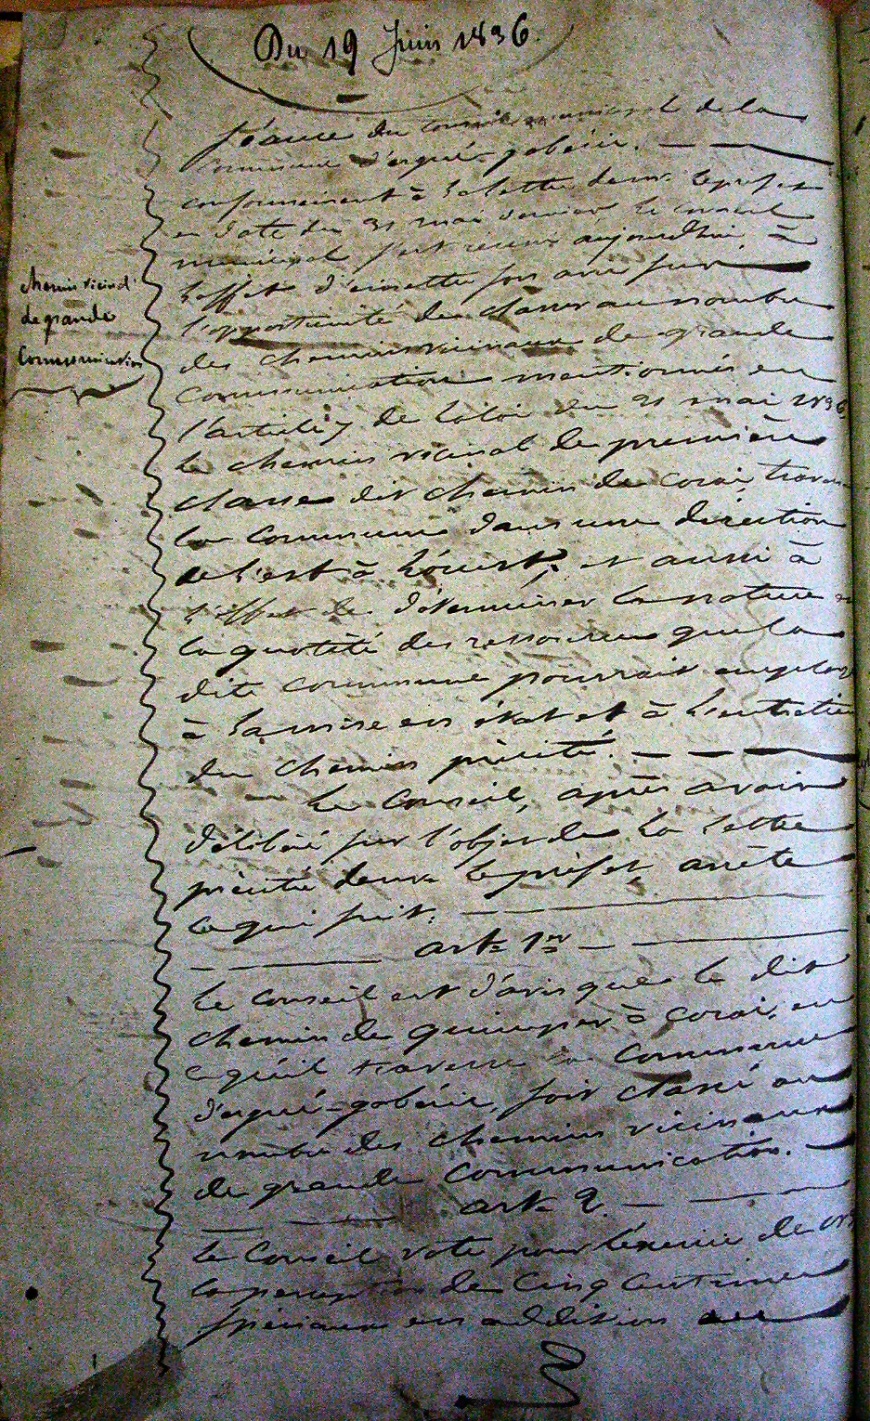 Du 19 Juin 1836.
Séance du conseil municipal de la
Commune d'ergué-gobéric.
conformément à la lettre de mr. le préfet
en date du 31 mai dernier le conseil
municipal s'est réuni aujourd'hui, à
l'effet d'émettre son avis sur
l'opportunité de classer au nombre
des chemins vicinaux de grande
Communication mentionnés en
l'article 7 de la loi du 21 mai 1836,
le chemin vicinal de première
classe dit chemin de Corai,
la Commune dans une direction
de l'est à l'ouest, et aussi à
l'effet de déterminer la nature
la quotité des ressources que la
dite commune pourrait
à la mise en état et à l'entretien
du chemin précité.
Le Conseil, après avoir
délibéré sur l'objet de la lettre
précitée de mr le préfet, arrête
ce qui suit:
art. 1er
Le Conseil est d'avis que le dit
chemin de quimper à Corai, en
ce qu'il traverse la Commune
d'ergué-gobéric, soit classé au
nombre des chemins vicinaux
de grande Communication.
art. 2.
Le Conseil vote pour l'exercice de
la perception de Cinq Centimes
spéciaux en addition au
chemin vicinal
de grande
Communication